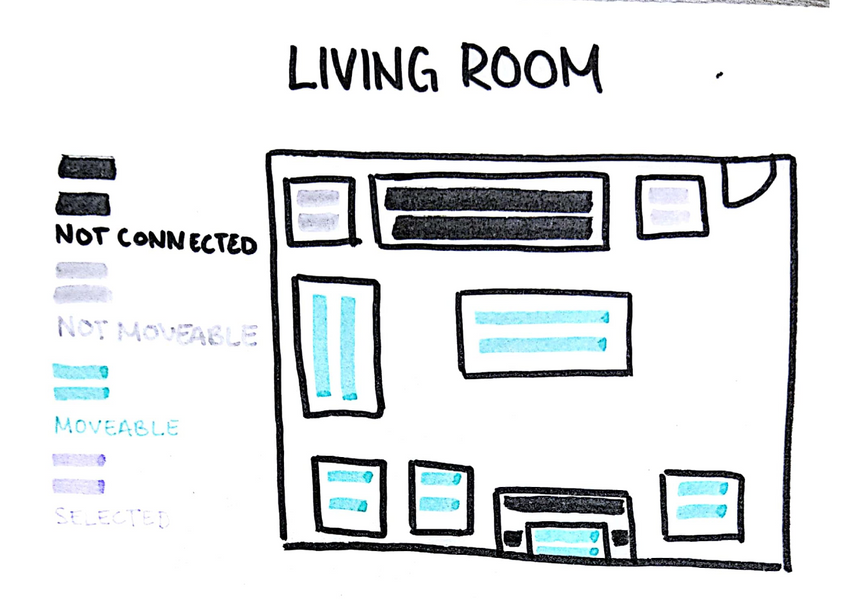 LIVING ROOM
NOT CONNECTED
NOT MOVEABLE
MOVEABLE
SELECTED